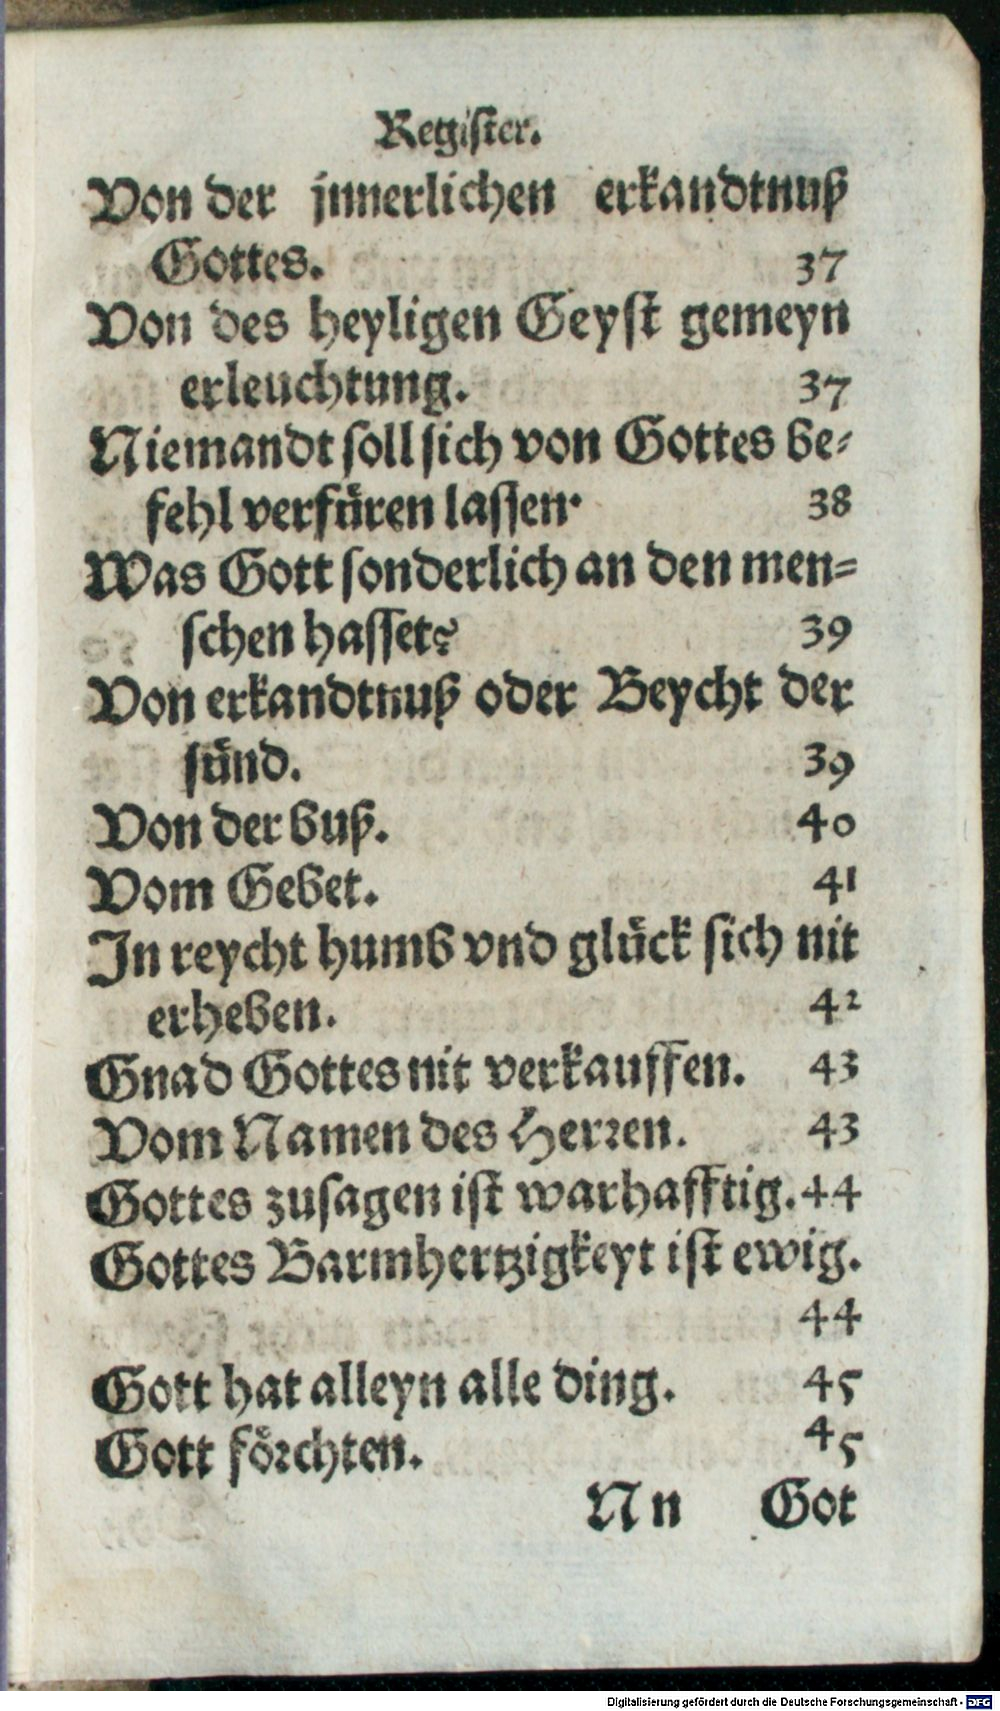 Register.
Von der jnnerlichen erkandtnuß
Gottes. 37
Von des heyligen Geyst gemeyn
erleuchtung. 37
Niemandt soll sich von Gottes be-
fehl verfüren lassen. 38
Was Gott sonderlich an den men-
schen hasset? 39
Von erkandtnuß oder Beycht der
sünd. 39
Von der buß. 40
Vom Gebet. 41
In reycht humb vnd glück sich nit
erheben. 42
Gnad Gottes nit verkauffen. 43
Vom Namen des Herren. 43
Gottes zusagen ist warhafftig. 44
Gottes Barmhertzigkeyt ist ewig.
44
Gott hat alleyn alle ding. 45
Gott förchten. 45
Nn Got
Digitalisierung gefördert durch die Deutsche Forschungsgemeinschaft - DFG